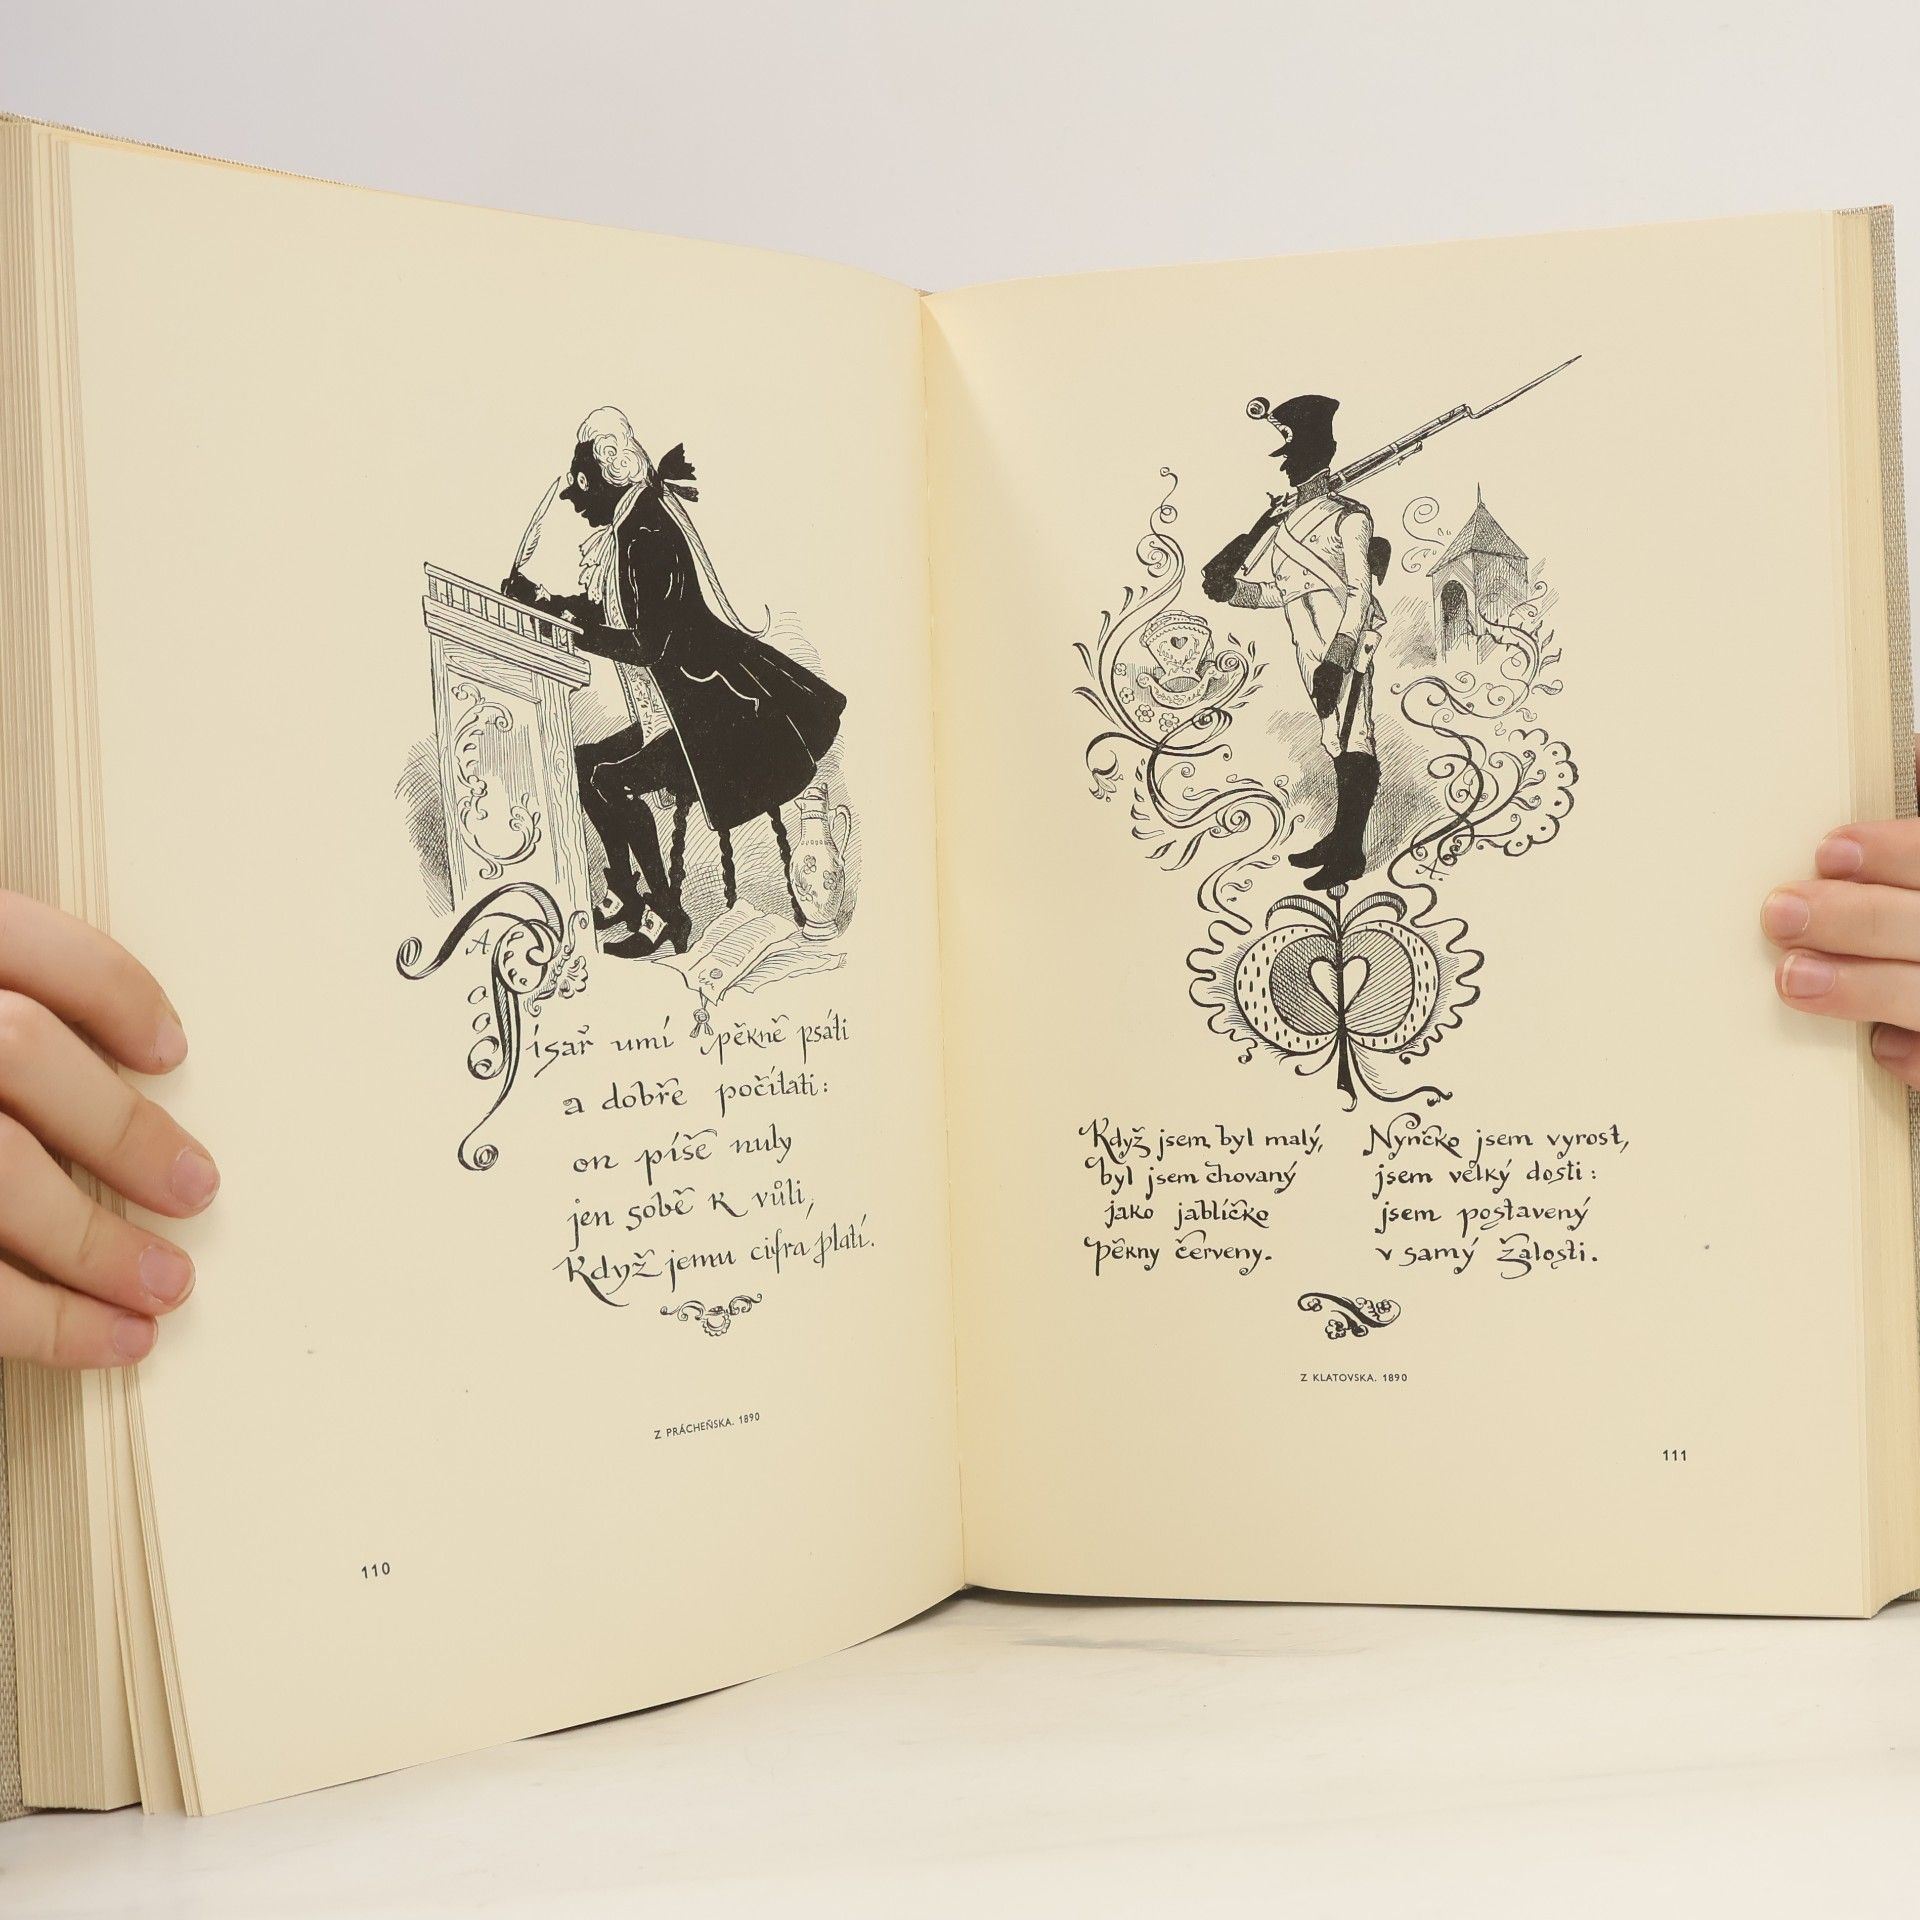 Písař umí pěkně psáti
a dobře počítati:
on píše nuly
jen sobě k vůli,
Když jemu cifra platí.
Z PRÁCHEŇSKA. 1890
110
Když jsem byl malý,
byl jsem chovaný
jako jablíčko
pěkny červeny.
Nynčko jsem vyrost,
jsem velký dosti:
jsem postavený
v samý žalosti.
Z KLATOVSKA. 1890
111